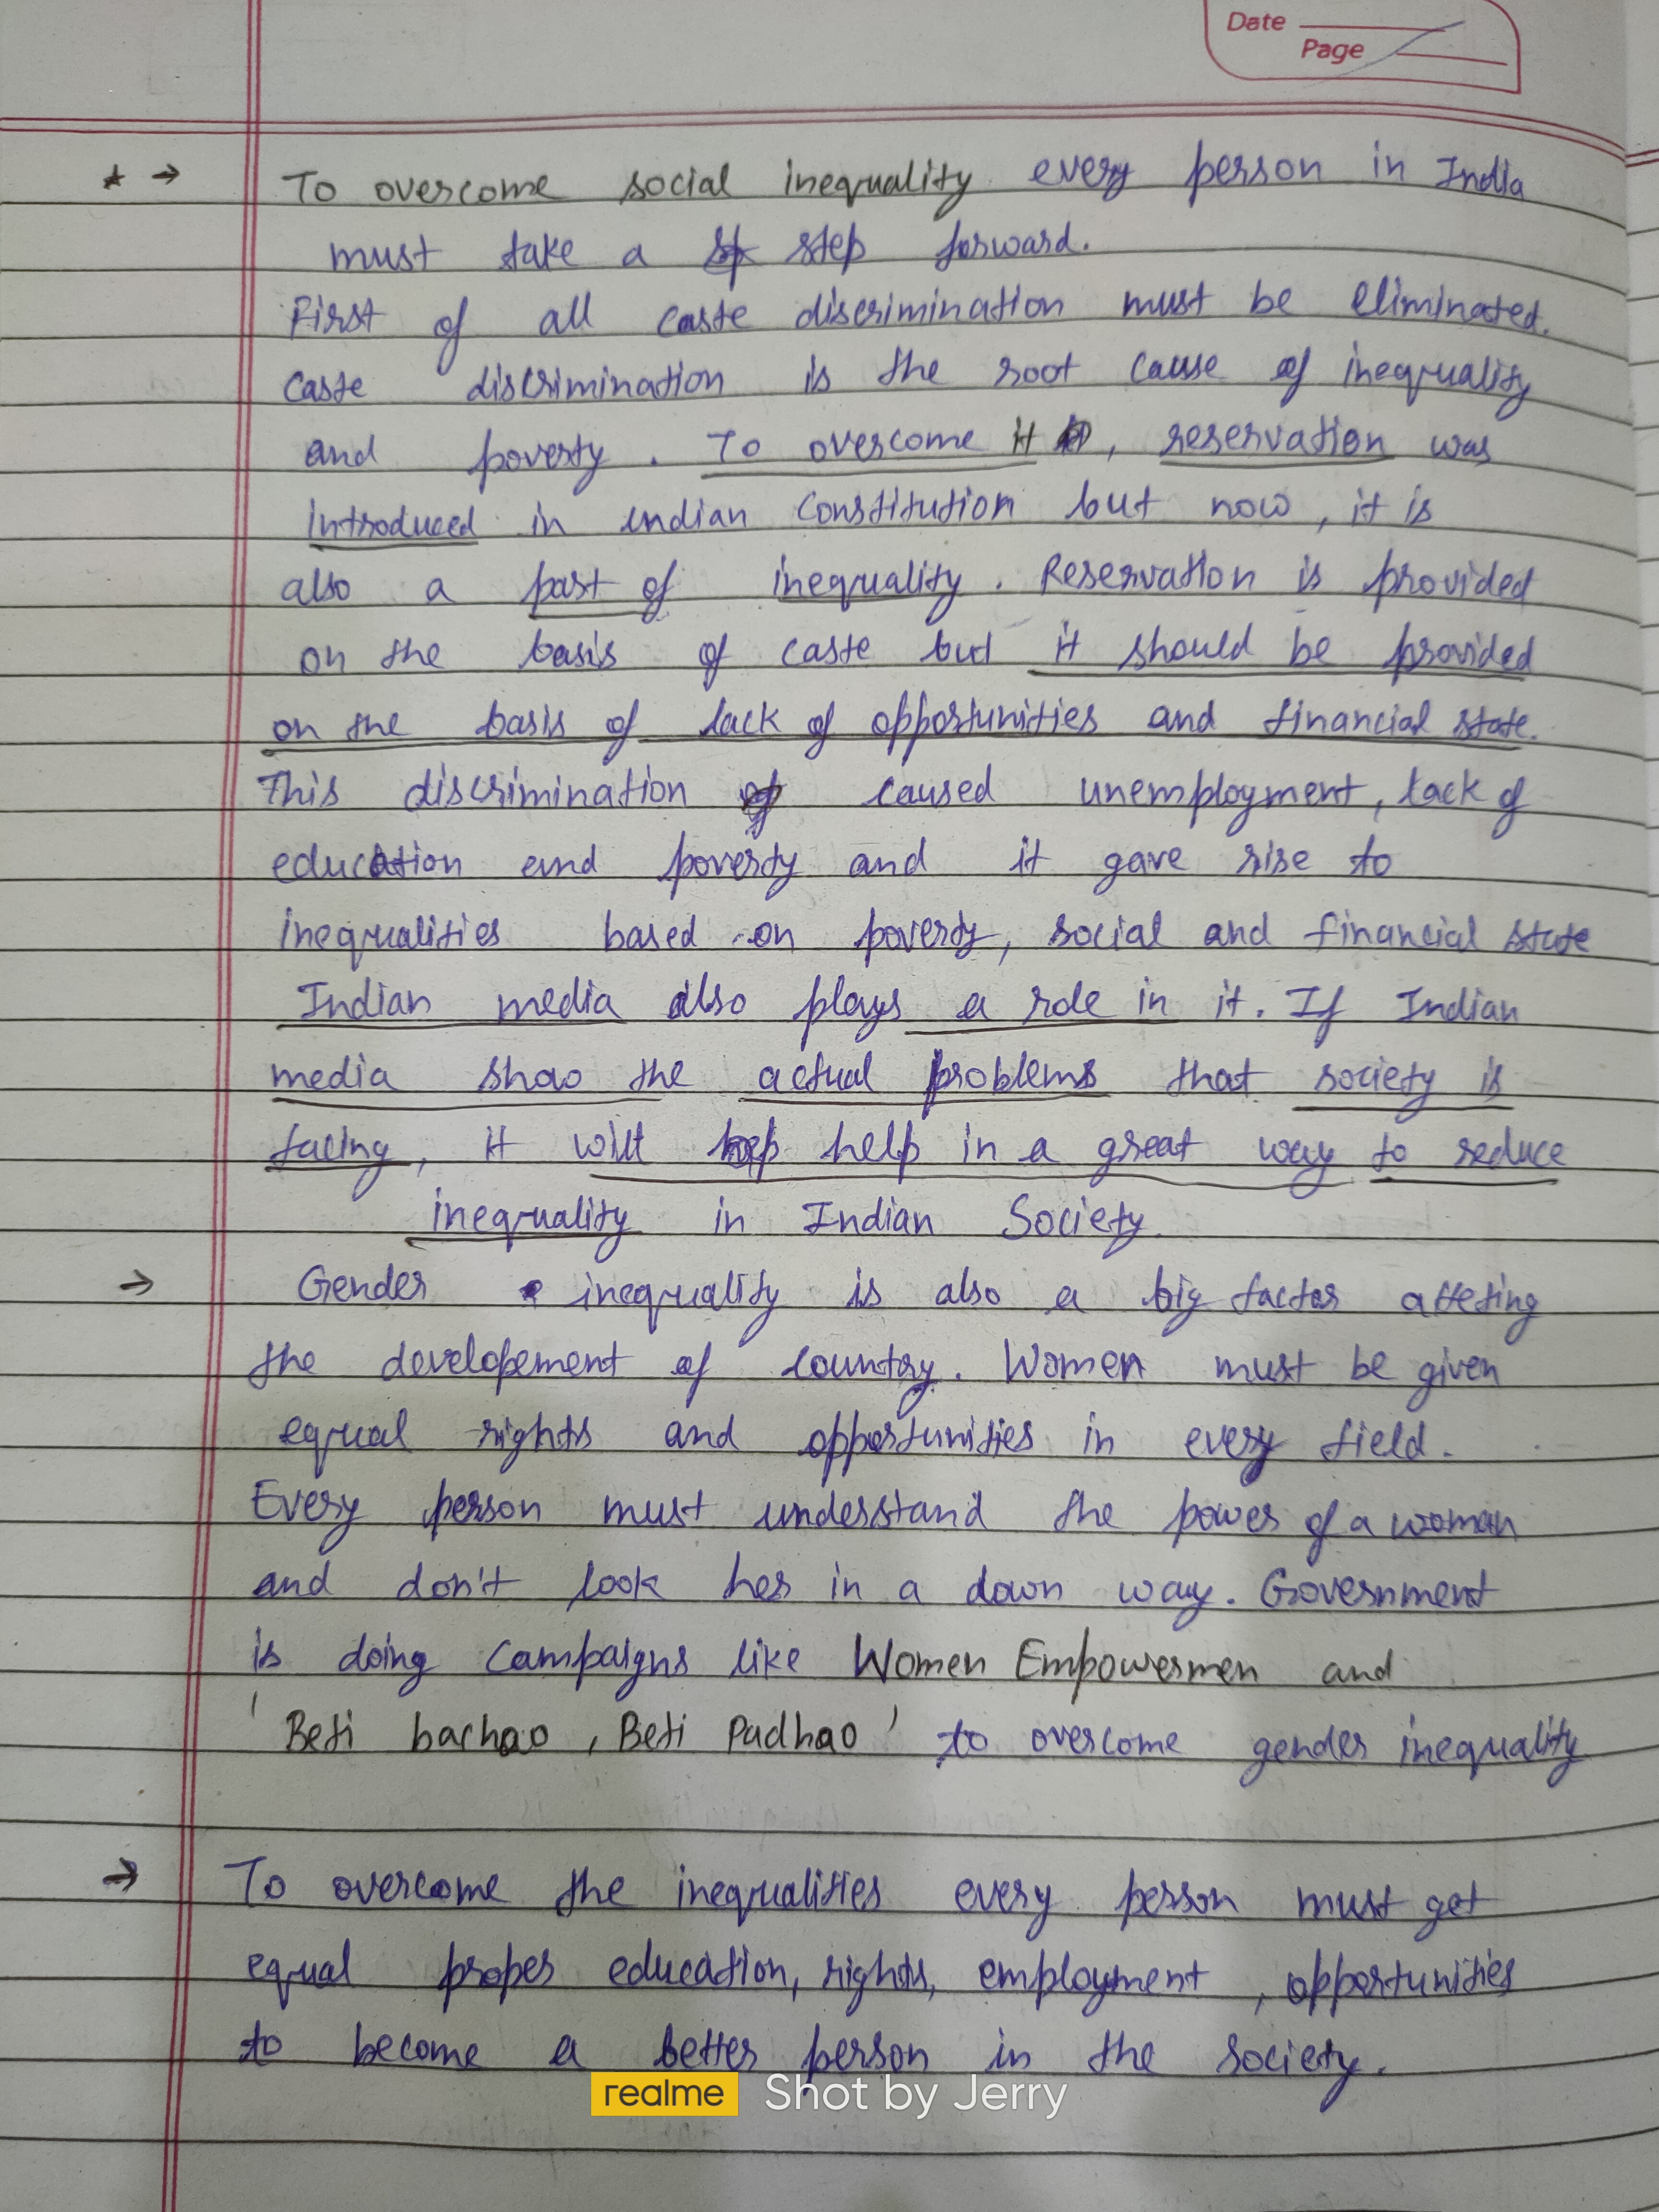 Date
Page
* → To overcome social inequality every person in India
must take a step forward.
First of all caste discrimination must be eliminated.
Caste discrimination is the root cause of inequality
and poverty. To overcome it, reservation was
introduced in indian constitution but now, it is
also a part of inequality. Reservation is provided
on the basis of caste but it should be provided
on the basis of lack of opportunities and financial state.
This discrimination caused unemployment, lack of
education and poverty and it gave rise to
inequalities based on poverty, social and financial state
Indian media also plays a role in it. If Indian
media show the actual problems that society is
facing, it will help in a great way to reduce
inequality in Indian Society.
→ Gender inequality is also a big factor affeting
the developement of country. Women must be given
equal rights and opportunities in every field.
Every person must understand the power of a woman
and don't look her in a down way. Government
is doing campaigns like Women Empowermen and
'Beti bachao, Beti Padhao' to overcome gender inequality
→ To overcome the inequalities every person must get
equal proper education, rights, employment, opportunities
to become a better person in the society.
realme Shot by Jerry